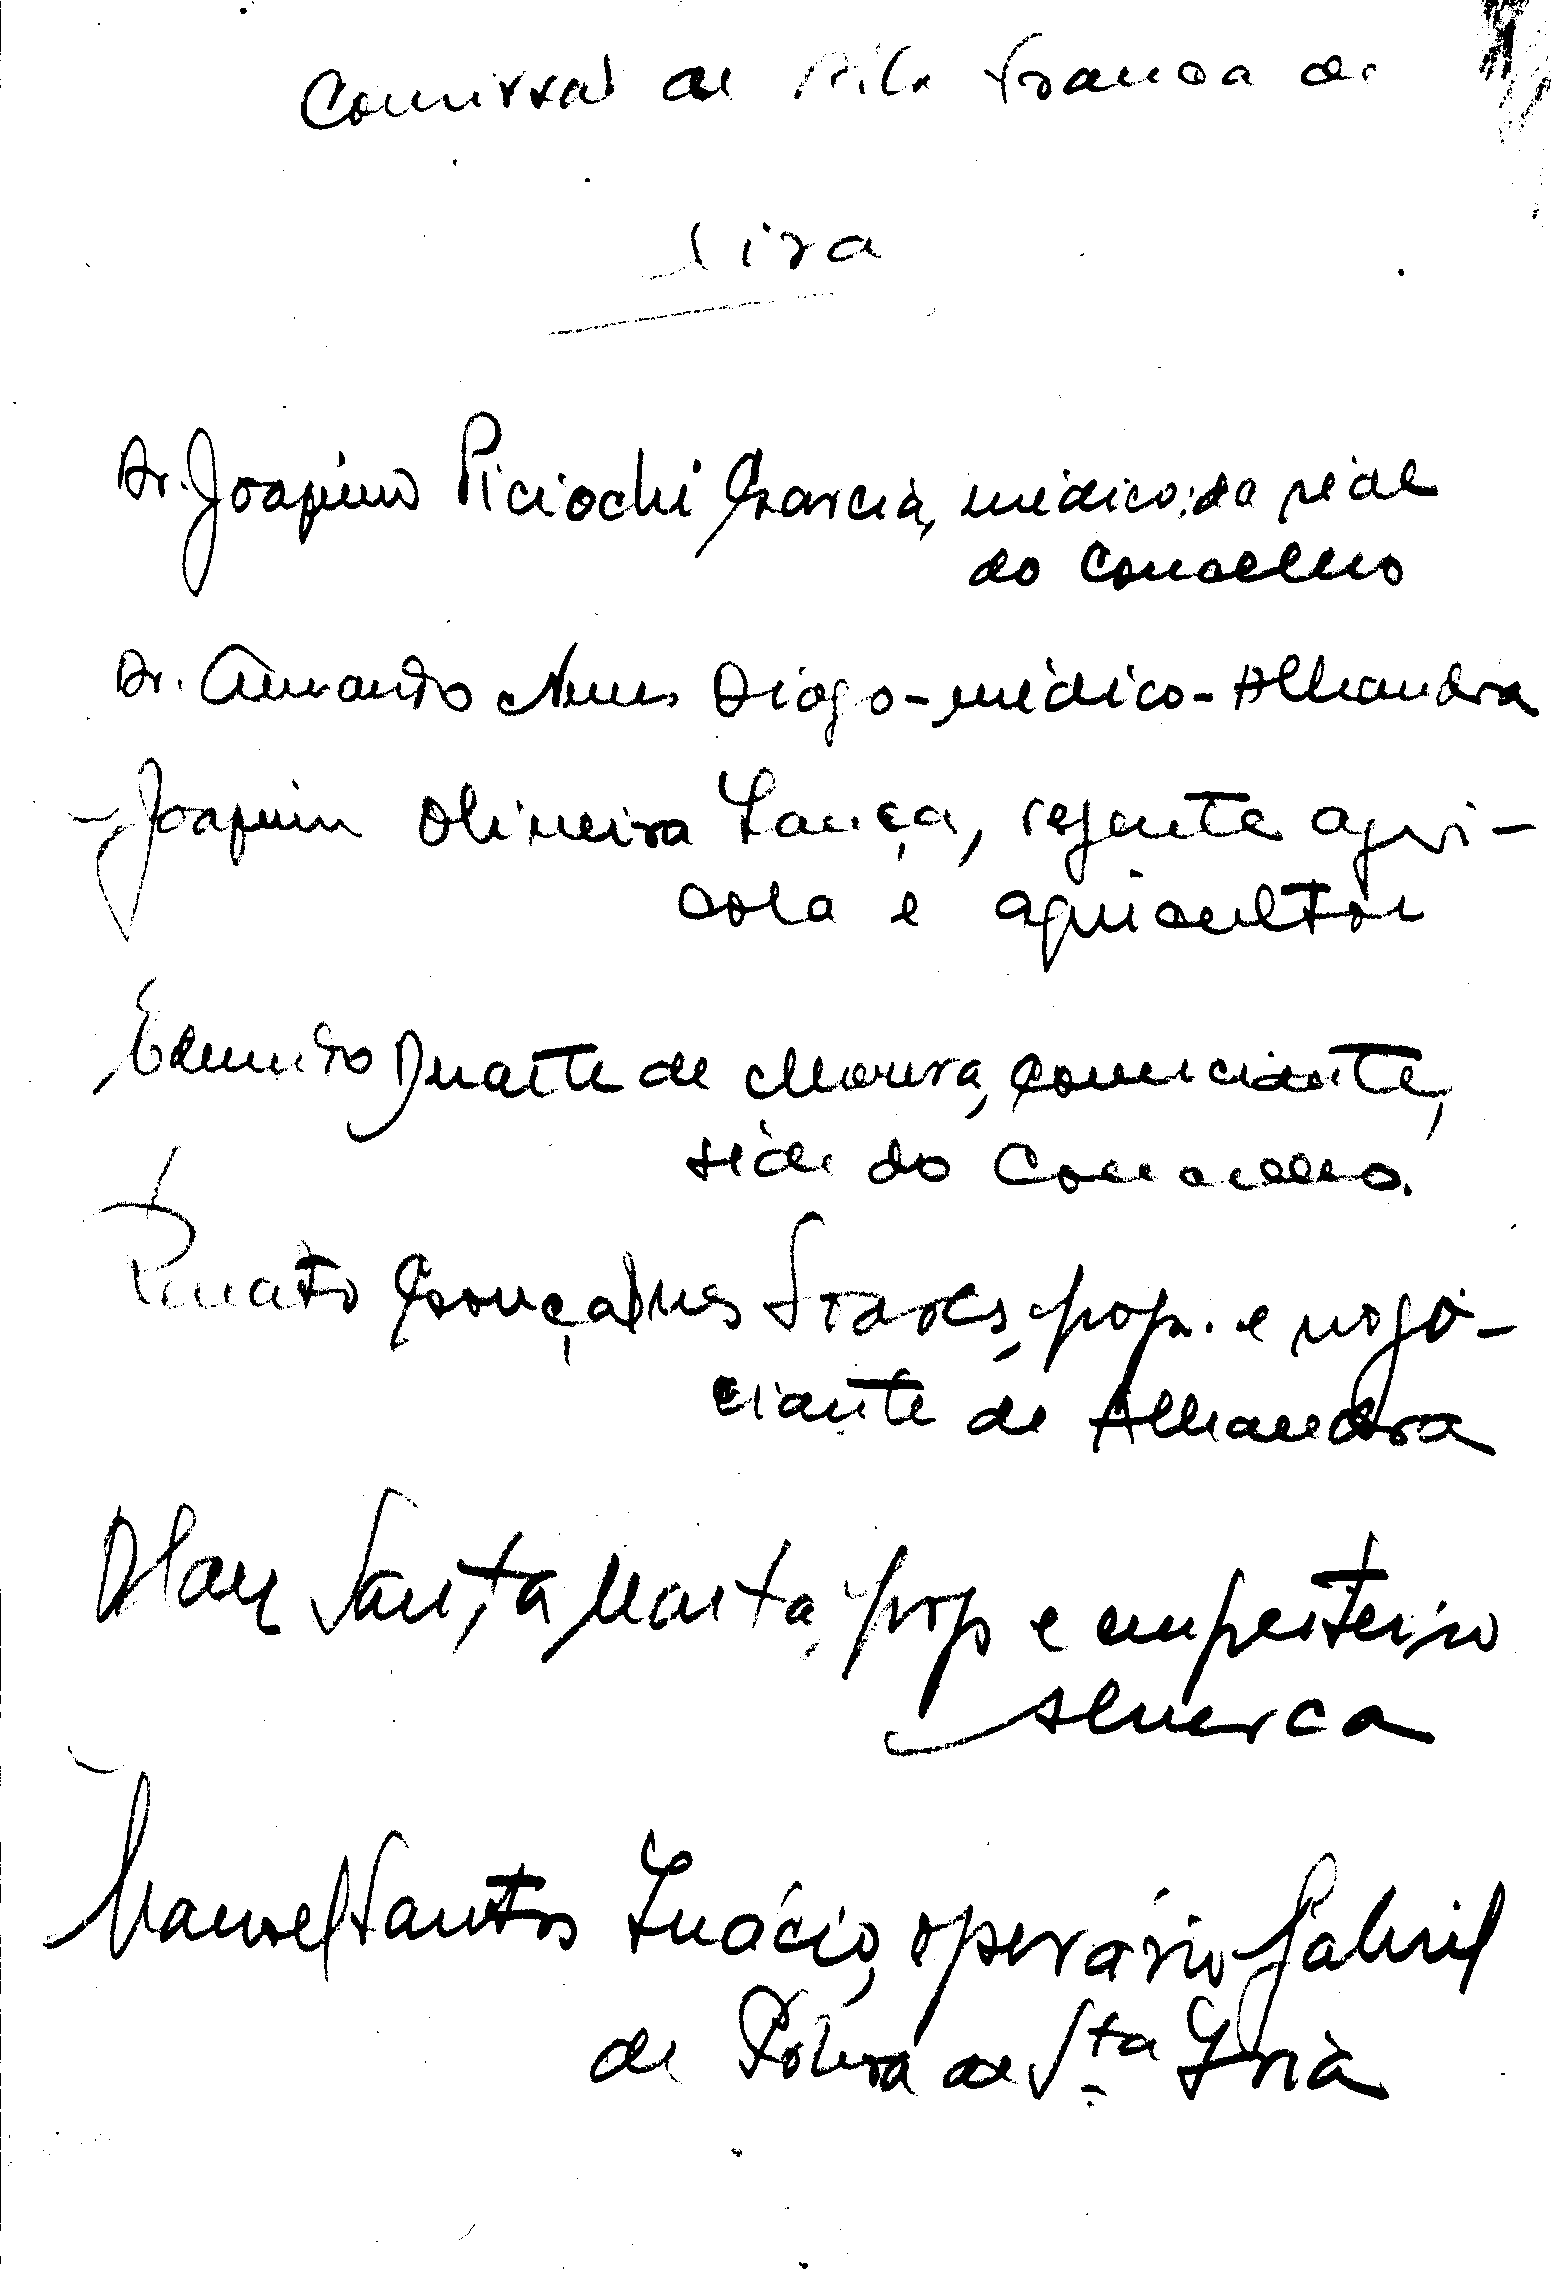 Comissão de Vila Franca de
Xira
Dr. Joaquim Piciochi Garcia, médico, da sede
do Concelho
Dr. Armando Nunes Diogo - médico - Alhandra
Joaquim Oliveira Lança, regente agrí-
cola e agricultor
Edmundo Duarte de Moura, comerciante,
sede do Concelho.
Renato Gonçalves Soares, prop. e nego-
ciante de Alhandra
Santa Marta, prop e empreiteiro
Alverca
Manuel Santos Inácio, operário fabril
de Póvoa de Sta Iria